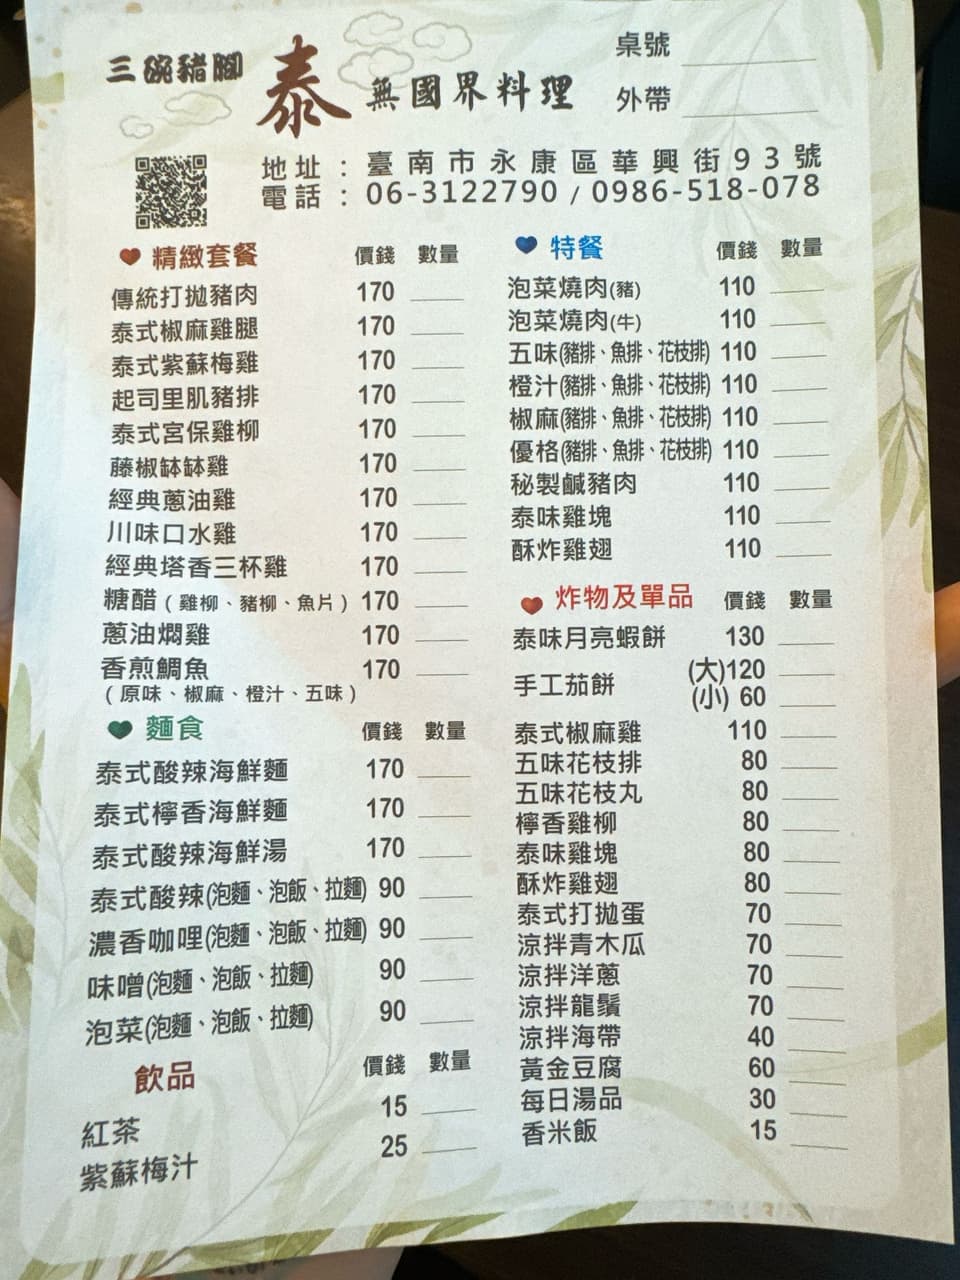 三碗豬腳 泰 無國界料理
桌號
外帶
地址：臺南市永康區華興街93號
電話：06-3122790 / 0986-518-078
精緻套餐 價錢 數量
傳統打拋豬肉 170
泰式椒麻雞腿 170
泰式紫蘇梅雞 170
起司里肌豬排 170
泰式宮保雞柳 170
藤椒缽缽雞 170
經典蔥油雞 170
川味口水雞 170
經典塔香三杯雞 170
糖醋（雞柳、豬柳、魚片）170
蔥油燜雞 170
香煎鯛魚 170
（原味、椒麻、橙汁、五味）
麵食 價錢 數量
泰式酸辣海鮮麵 170
泰式檸香海鮮麵 170
泰式酸辣海鮮湯 170
泰式酸辣(泡麵、泡飯、拉麵) 90
濃香咖哩(泡麵、泡飯、拉麵) 90
味噌(泡麵、泡飯、拉麵) 90
泡菜(泡麵、泡飯、拉麵) 90
飲品 價錢 數量
紅茶 15
紫蘇梅汁 25
特餐 價錢 數量
泡菜燒肉(豬) 110
泡菜燒肉(牛) 110
五味(豬排、魚排、花枝排) 110
橙汁(豬排、魚排、花枝排) 110
椒麻(豬排、魚排、花枝排) 110
優格(豬排、魚排、花枝排) 110
秘製鹹豬肉 110
泰味雞塊 110
酥炸雞翅 110
炸物及單品 價錢 數量
泰味月亮蝦餅 130
手工茄餅 (大)120
(小) 60
泰式椒麻雞 110
五味花枝排 80
五味花枝丸 80
檸香雞柳 80
泰味雞塊 80
酥炸雞翅 80
泰式打拋蛋 70
涼拌青木瓜 70
涼拌洋蔥 70
涼拌龍鬚 70
涼拌海帶 40
黃金豆腐 60
每日湯品 30
香米飯 15